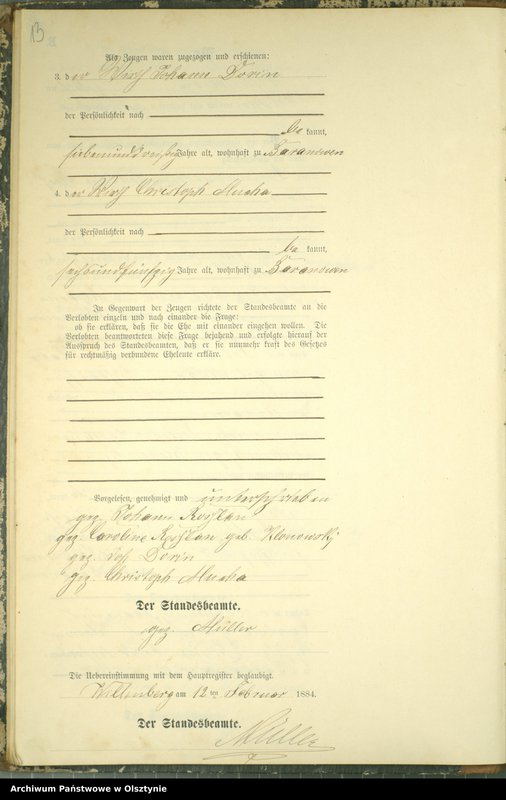 13
Als Zeugen waren zugezogen und erschienen:
3. der Wirth Johann Dorin
der Persönlichkeit nach
be kannt,
siebenunddreißig Jahre alt, wohnhaft zu Baranowen
4. der Wirth Christoph Mucha
der Persönlichkeit nach
be kannt,
sechsundfünfzig Jahre alt, wohnhaft zu Baranowen
In Gegenwart der Zeugen richtete der Standesbeamte an die
Verlobten einzeln und nach einander die Frage:
ob sie erklären, daß sie die Ehe mit einander eingehen wollen. Die
Verlobten beantworteten diese Frage bejahend und erfolgte hierauf der
Ausspruch des Standesbeamten, daß er sie nunmehr kraft des Gesetzes
für rechtmäßig verbundene Eheleute erkläre.
Vorgelesen, genehmigt und unterschrieben
gez. Johann
gez. Caroline geb. Klonowsky
gez. Joh. Dorin
gez. Christoph Mucha
Der Standesbeamte.
gez. Müller
Die Uebereinstimmung mit dem Hauptregister beglaubigt.
Willenberg am 12ten Februar 1884.
Der Standesbeamte.
Müller
Archiwum Państwowe w Olsztynie